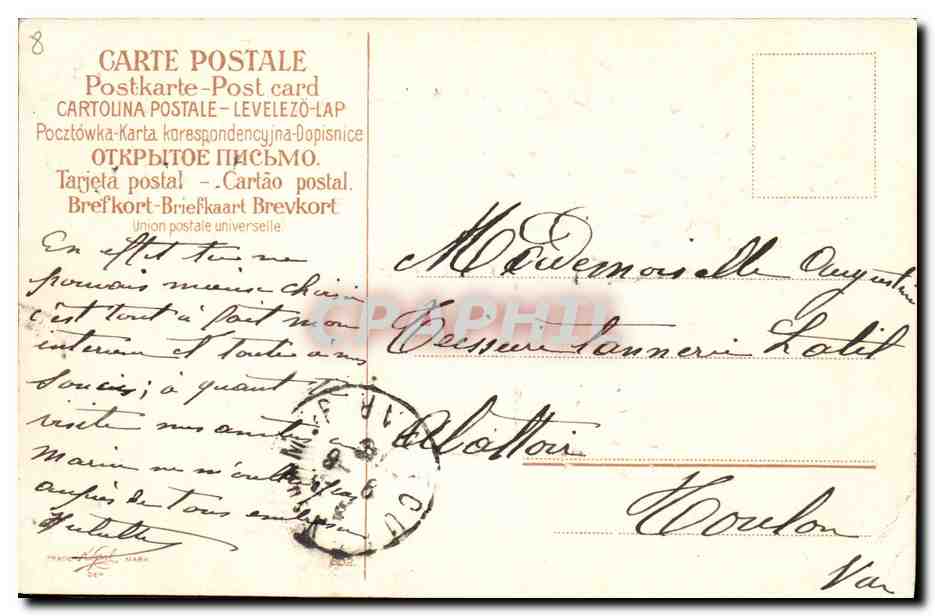 8
CARTE POSTALE
Postkarte-Post card
CARTOLINA POSTALE-LEVELEZÖ-LAP
Pocztówka-Karta korespondencyjna-Dopisnice
ОТКРЫТОЕ ПИСЬМО.
Tarjeta postal - Cartão postal.
Brefkort-Briefkaart Brevkort
Union postale universelle
En effet tu ne
pouvais mieux choisir
c'est tout à fait mon
interieur et toutes mes
soucis; à quant ta
visite mes amitiés à
Marie ne m'oublie pas
auprès de tous
Mademoiselle Augustine
Teisseire Tannerie Latil
Abattoir
Toulon
Var
CPAPHIL
MARK
DEP